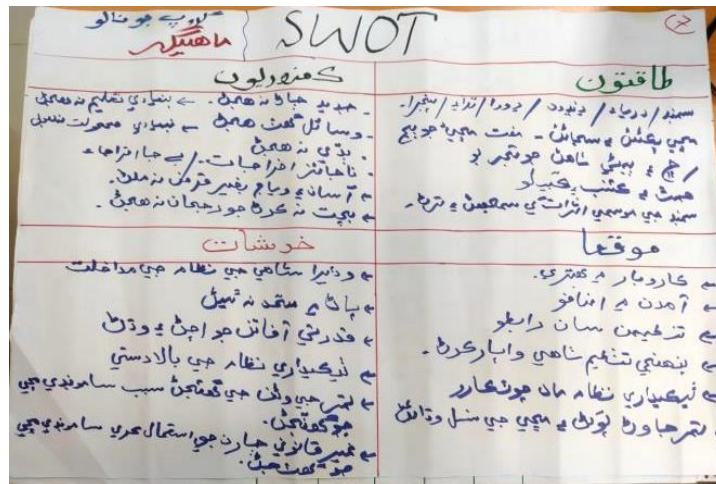 گروپ جو نالو
ماهيگير
SWOT
7
طاقتون
سمنڊ / درياءَ / ڍنڍون / ڏورا / تراءَ / پڃرا.
مڇي پڪڻ ۽ سڃاڻڻ - مفت مڇي جو ٻج
/ ڄ ۽ ٻيڙي ٺاهڻ جو تجربو
همٿ ۽ محنت ڪش قبيلو
سمنڊ جي موسمي اثرات کي سمجهڻ ۽ ترڻ.
ڪمزوريون
- جديد ڄار نه هجڻ. ← بنيادي تعليم نه هجڻ
- وسائل گهٽ هجڻ ← بنيادي سهولت نه هجڻ
- ٻڌي نه هجڻ
- ناجائز اخراجات / بي جا اخراجات
← آساني ۽ وياج بغير قرض نه ملڻ.
← بچت نه ڪرڻ جو رجحان نه هجڻ.
موقعا
← ڪاروبار ۾ بهتري.
← آمدن ۾ اضافو
← تنظيمن سان رابطو
← پنهنجي تنظيم ٺاهي واپار ڪرڻ.
← ٺيڪيداري نظام مان ڇوٽڪارو
← تمر جا وڻ پوکڻ ۽ مڇي جي نسل وڌائڻ
خدشات
← وڏيرا شاهي جي نظام جي مداخلت
← پاڻ ۾ متحد نه ٿيڻ
← قدرتي آفاتن جو اچڻ ۽ وڌڻ
← ٺيڪيداري نظام جي بالادستي
← تمر جي وڻن جي گهٽجڻ سبب سامونڊي مڇي
جو گهٽجڻ.
← غير قانوني ڄارن جي استعمال ڪري سامونڊي مڇي
جو گهٽ هجڻ.